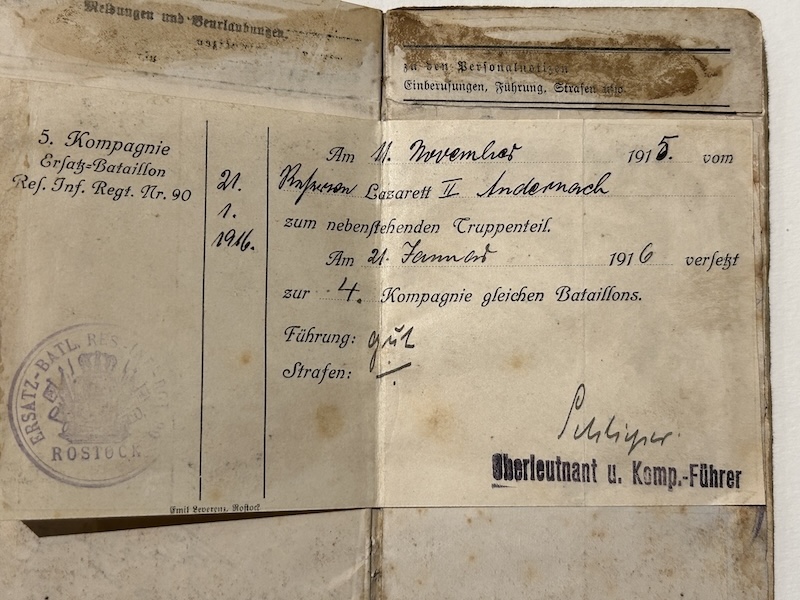 Meldungen und Beurlaubungen.
zu den Personalnotizen
Einberufungen, Führung, Strafen usw.
5. Kompagnie
Ersatz-Bataillon
Res. Inf. Regt. Nr. 90
21.
1.
1916.
Am 11. November 1915. vom
Reserve Lazarett II Andernach
zum nebenstehenden Truppenteil.
Am 21. Januar 1916 versetzt
zur 4. Kompagnie gleichen Bataillons.
Führung: gut
Strafen: —
ERSATZ-BATL. RES.
ROSTOCK
Oberleutnant u. Komp.-Führer
Emil Leverenz, Rostock